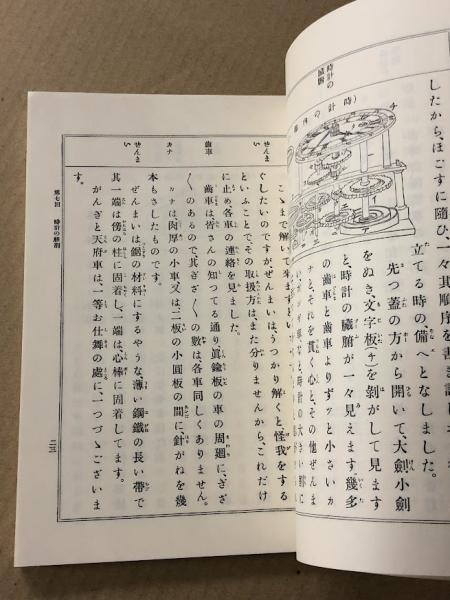 したから、ほごすに隨ひ、一々其順序を書し
立てる時の備へとなしました。
先つ蓋の方から開いて、大劍小劍
をぬき、文字板(チ)を剝がして見ます
と、時計の臓腑が一々見えます。幾多
の齒車と齒車よりずッと小さいカ
ナと、それを貫く心と、その他ぜんま
時計の
(時計の内部)
チ
ぜんまい
齒車
カナ
ぜんまい
こゝまで解いて來ますと
ぐしたいのですが、ぜんまいは、うつかり解くと、怪我をする
といふことで、その取扱方は、また分りませんから、これだけ
に止め、各車の連絡を見ました。
齒車は、皆さんの知つてる通り、眞鍮板の車の周廻に、ぎざ
〱のあるので、其ぎざ〱の數は、各車同しくありません。
カナは、肉厚の小車又は二板の小圓板の間に、針がねを幾
本もさしたものです。
ぜんまいは、鋸の材料にするやうな、薄い鋼鐵の長い帶で
其一端は傍の柱に固着し、一端は心棒に固着してます。
がんぎと天府車は、一等お仕舞の處に、一つづゝございま
す。
第七回 時計の解剖
二三